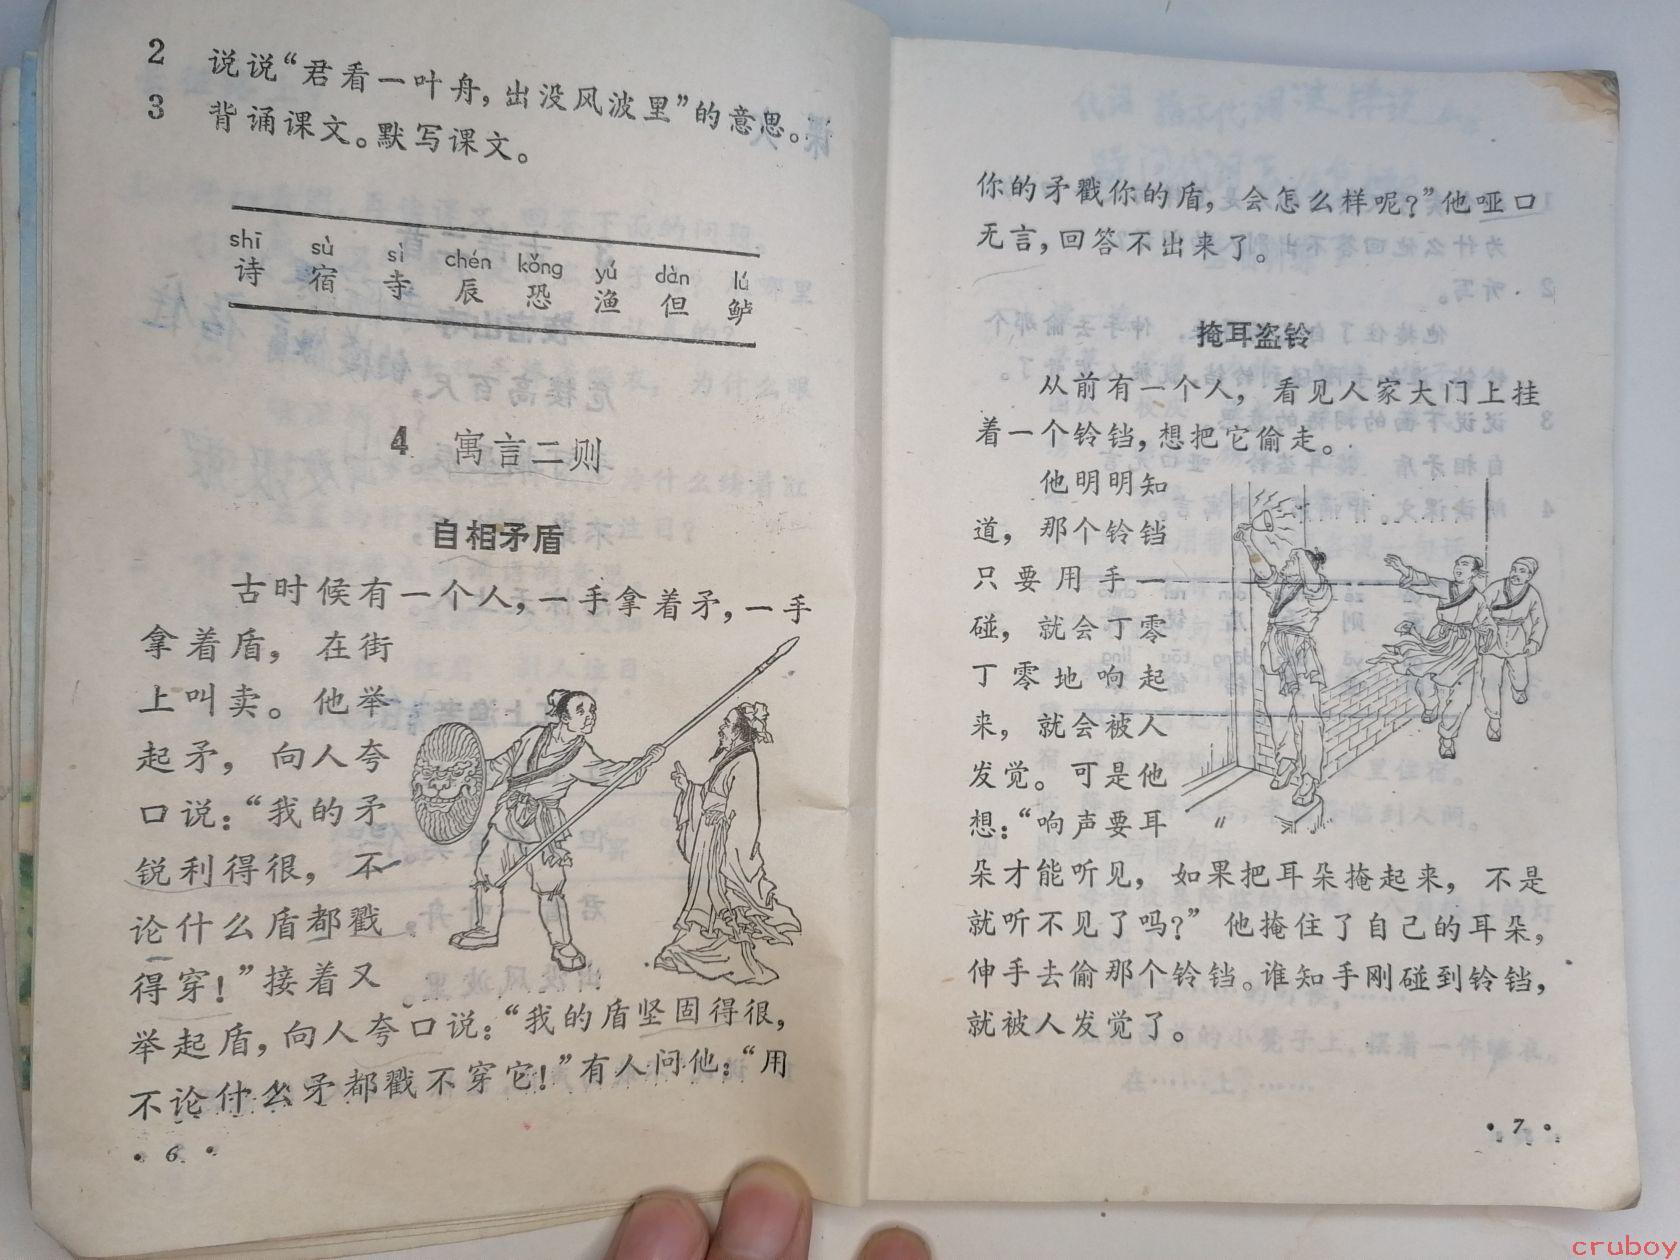 2 说说“君看一叶舟，出没风波里”的意思。
3 背诵课文。默写课文。
shī sù sì chén kǒng yú dàn lú
诗 宿 寺 辰 恐 渔 但 鲈
4 寓言二则
自相矛盾
古时候有一个人，一手拿着矛，一手
拿着盾，在街
上叫卖。他举
起矛，向人夸
口说：“我的矛
锐利得很，不
论什么盾都戳
得穿！”接着又
举起盾，向人夸口说：“我的盾坚固得很，
不论什么矛都戳不穿它！”有人问他：“用
·6·
你的矛戳你的盾，会怎么样呢？”他哑口
无言，回答不出来了。
掩耳盗铃
从前有一个人，看见人家大门上挂
着一个铃铛，想把它偷走。
他明明知
道，那个铃铛
只要用手一
碰，就会丁零
丁零地响起
来，就会被人
发觉。可是他
想：“响声要耳
朵才能听见，如果把耳朵掩起来，不是
就听不见了吗？”他掩住了自己的耳朵，
伸手去偷那个铃铛。谁知手刚碰到铃铛，
就被人发觉了。
·7·
cruboy